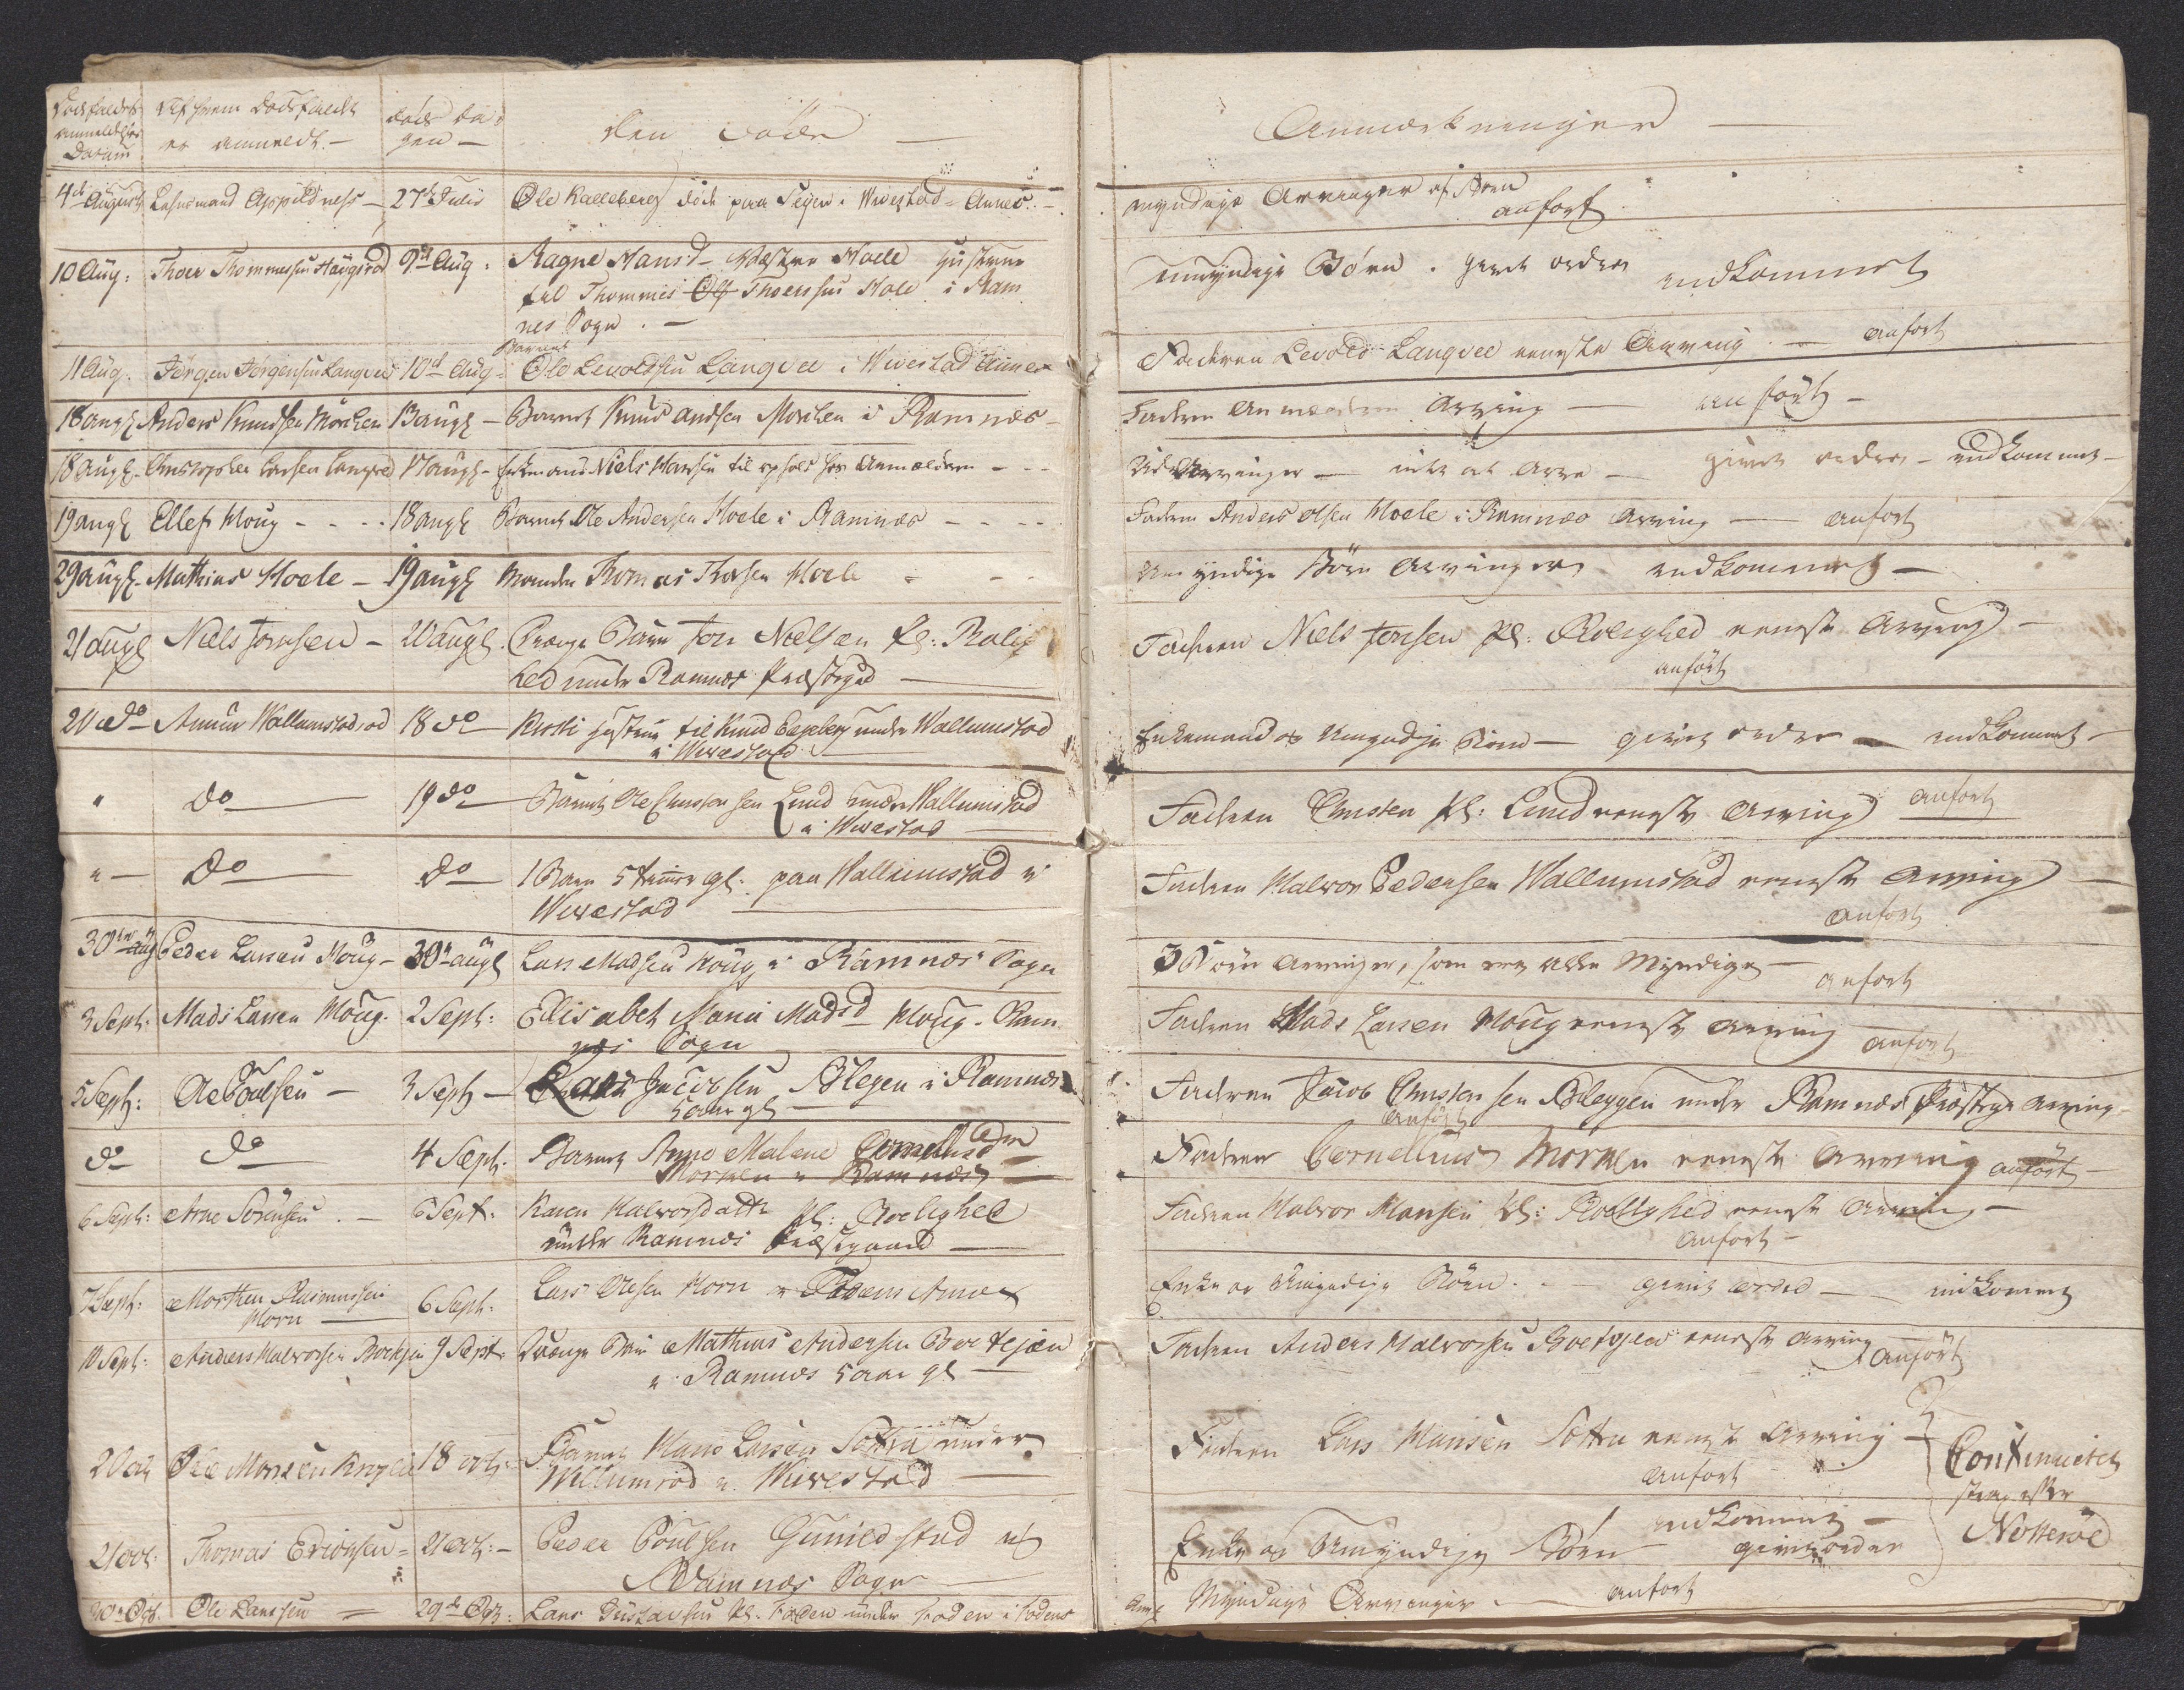 Dødsfaldets
Anmeldelses
Datum
Af hvem Dødsfaldet
er anmeldt. -
døds Da-
gen -
Den Døde -
Anmærkninger -
4de August Lehnsmand Oppildness - 27de Julii Ole Kalleberg døde paa Seyer i Wivestad Annex. -
myndige Arvinger af Støen
anført
10 Aug: Thoer Thommessen Haugsrød 9de Aug: Ragne Hansd - Hoele hustrue
til Thommes Thoerssen Hole i Ram
nes Sogn. -
umyndige Børn. givet ordre indkommet
11 Aug. Jørgen Jørgensen Langvee 10de Aug - Barnet
Ole Levoldsen Langvee i Wivestad Annex
Faderen Levold Langvee eeneste Arving - anført
18 augt Anders Knudsen Morken 13 augt - Barnet Knud Andsen Morken i Ramnæs -
Faderen Anmælderen Arving - anført -
18 augt - Christopher Larsen 17 augt - Enkemand Niels Hansen til ophold hos Anmælderen - - -
Arvinger - intet at Arve - givet ordre - indkommet -
19 augt Ellef Houg - - - 18 augt Barnet Ole Andersen Hoele i Ramnæs - - - -
Faderen Anders Olsen Hoele i Ramnæs Arving - anført
29 augt. Mathias Hoele - 19 augt Manden Thomas Thorsen Hoele - - -
Umyndige Børn Arvinger indkommet -
21 augt Niels Jonsen - 20 augt. Drænge Barn Jon Nielsen Pl: Rolig
hed under Ramnæs Præstegd -
Faderen Niels Jonsen Pl: Roelighed eeneste Arving -
anført
20 do Wallumstadrød 18 do - Kirsti hustrue til Knud under Wallumstad
i Wivestad -
Enkemand og Umyndige Børn - givet ordre - indkommet -
" do - 19 do - Barnet Ole Christensen Lund under Wallumstad
i Wivestad -
Faderen Christen Pl: Lund eeneste Arving anført
" - do - do - 1 Barn 5 timer gl: paa Wallumstad i
Wivestad -
Faderen Halvor Pedersen Wallumstad eeneste Arving -
anført
30te aug Peder Larsen Houg - 30te augt Lars Madsen Houg i Ramnæs Sogn
3 Børn Arvinger, som ere alle Myndige -
anført
3 Sept: Mads Larsen Houg. 2 Sept: Elisabet Maria Madsd - Houg. Ram
næs Sogn
Faderen Mads Larsen Houg eeneste Arving anført
5 Sept: Ole Poulsen - 3 Sept - Jacobsen Blegen i Ramnæs
5 aar gl -
Faderen Jacob Christensen Bleggen under Ramnæs Præstegd Arving
anført
do do 4 Sept. Barnet Anne Malene Cornelliusd -
Morken i Ramnæs -
Faderen Cornellius Morken eeneste Arving anført -
6 Sept: Arne Sørensen. - 6 Sept. Karen Halvorsdatter Pl: Roelighed
under Ramnæs Præstegaard -
Faderen Halvor Hansen Pl: Roelighed eeneste Arving -
anført -
7 Sept: Morthen Rasmussen
Horn - 6 Sept: Lars Olesen Horn i Fodens Annex
Enke og Umyndige Børn. - givet ordre - indkommet
10 Sept: Anders Halvorsen 9 Sept - Drænge Barn Mathias Andersen
i Ramnæs 5 aar gl -
Faderen Anders Halvorsen eeneste Arving anført
20 oct Ole 18 oct: - Barnet Hans Larsen Sottra under
Willumrød i Wivestad -
Faderen Lars Hansen Sottra eeneste Arving -
anført
Continueret
strax efter
Nøtterøe
21 oct. Thomas Erichsen - 21 oct: - Peder Poulsen Gunildstad
Ramnæs Sogn -
Enke og Umyndige Børn indkommet -
givet ordre
30te Oct. Ole Larssen - 29de Oct: Lars Gustavsen Pl. Foden under Foden i Fodens
Anx Myndige Arvinger. - anført